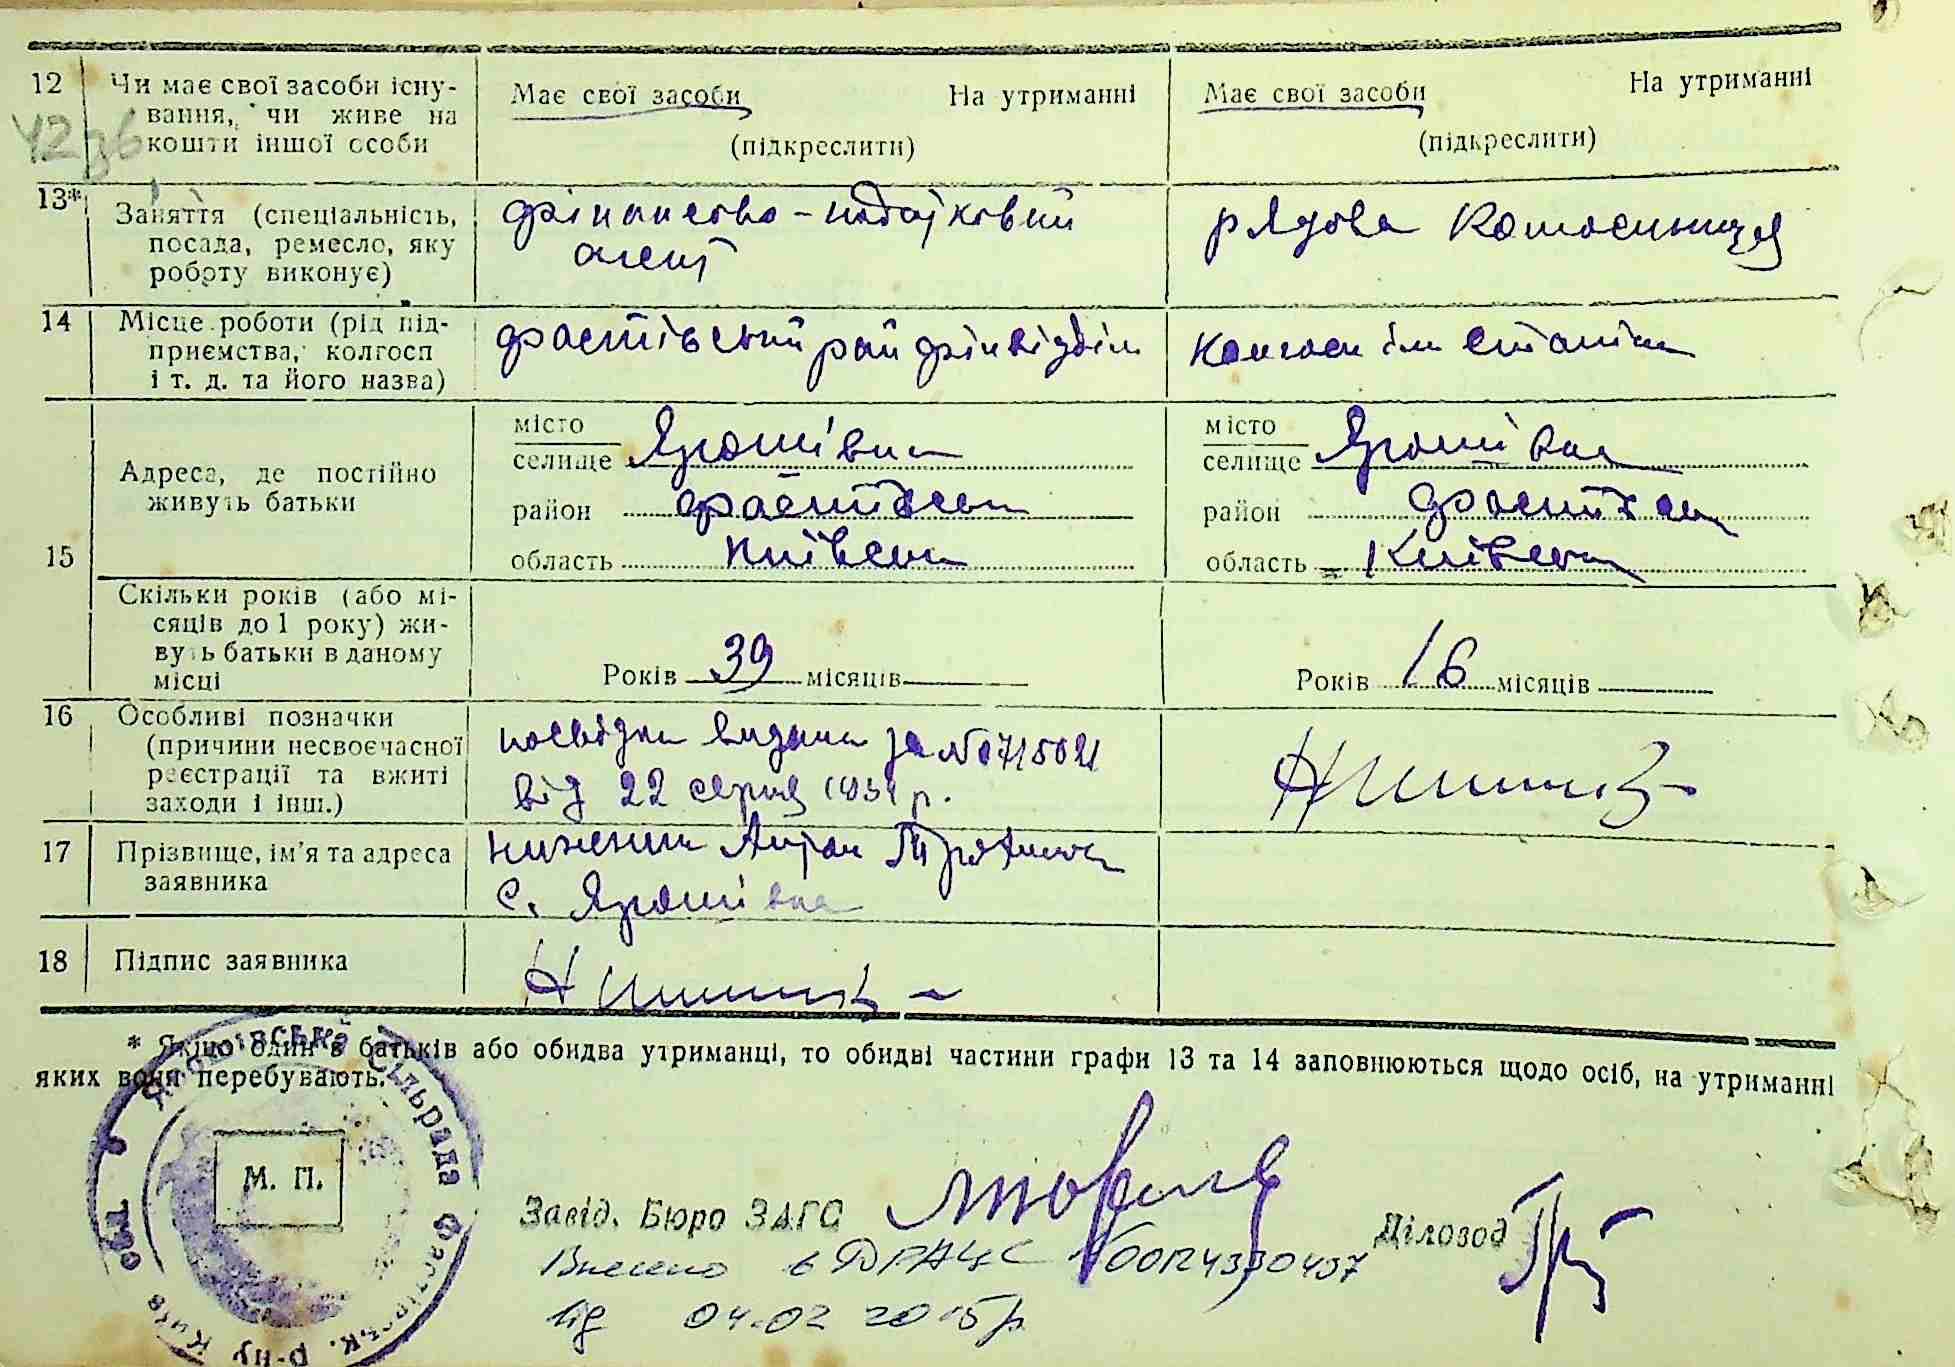 12
Чи має свої засоби існу-
вання, чи живе на
кошти іншої особи
Має свої засоби На утриманні
(підкреслити)
Має свої засоби На утриманні
(підкреслити)
13*
Заняття (спеціальність,
посада, ремесло, яку
роботу виконує)
фінансово-податковий
агент
рядова колгоспниця
14
Місце роботи (рід під-
приємства, колгосп
і т. д. та його назва)
фастівський райфінвідділ
колгосп ім Сталіна
15
Адреса, де постійно
живуть батьки
місто
селище Ярошівка
район Фастівськ
область Київськ
місто
селище Ярошівка
район Фастівськ
область Київськ
Скільки років (або мі-
сяців до 1 року) жи-
вуть батьки в даному
місці
Років 39 місяців
Років 16 місяців
16
Особливі позначки
(причини несвоєчасної
реєстрації та вжиті
заходи і інш.)
посвідка видана за №
від 22 серпня р.
17
Прізвище, ім'я та адреса
заявника
Антон
с. Ярошівка
18
Підпис заявника
* Якщо один з батьків або обидва утриманці, то обидві частини графи 13 та 14 заповнюються щодо осіб, на утриманні
яких вони перебувають.
Ярошівська Сільрада Фастівськ. р-ну Київ обл.
М. П.
Завід. Бюро ЗАГС
Діловод
Внесено в ДРАЦС
від 04.02 2015р